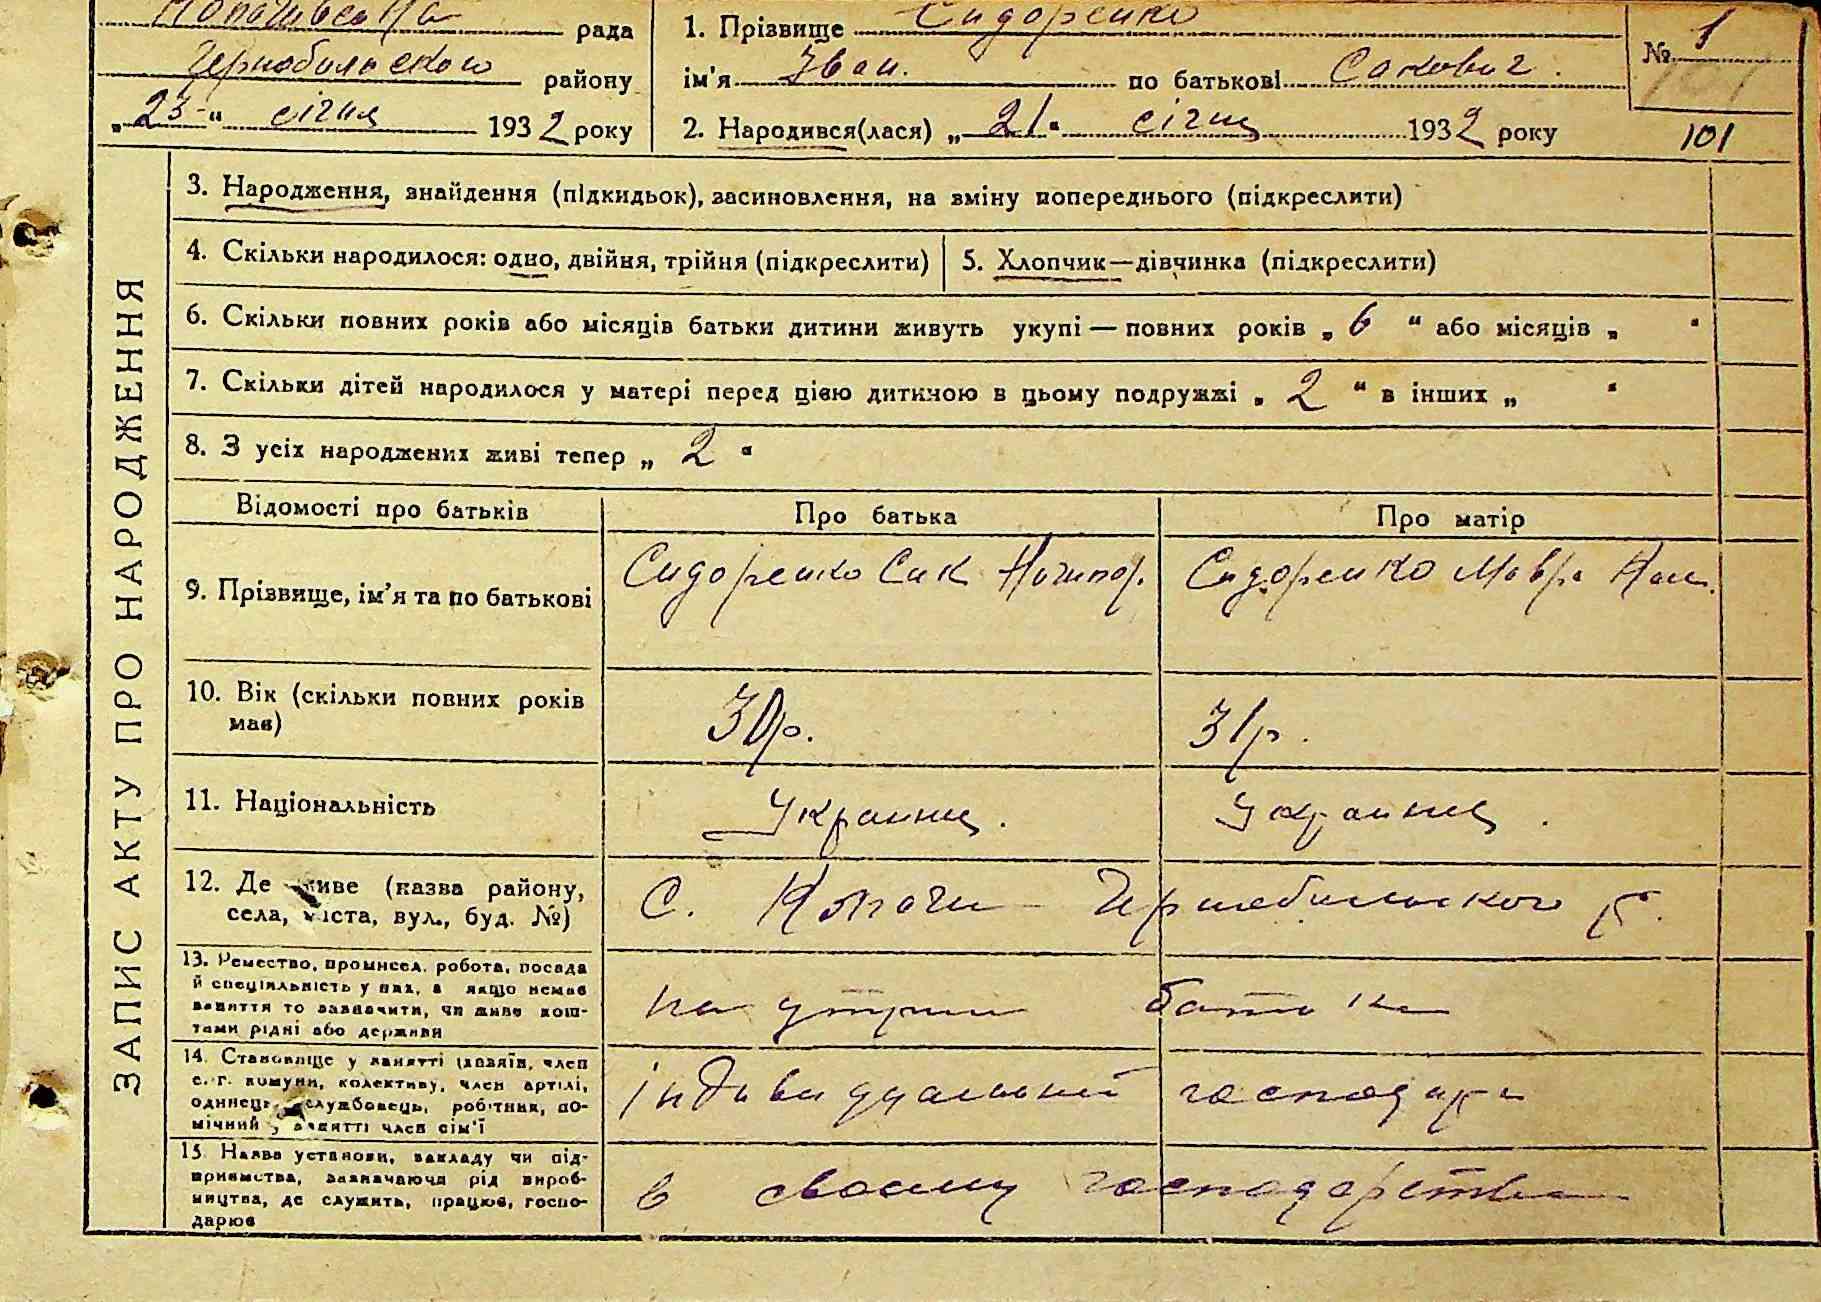 Копачівська рада
Чернобильского району
„23“ січня 1932 року
1. Прізвище Сидоренко
ім'я Іван. по батькові Сакович.
2. Народився(лася) „21“ січня 1932 року
№ 1
101
101
ЗАПИС АКТУ ПРО НАРОДЖЕННЯ
3. Народження, знайдення (підкидьок), засиновлення, на зміну попереднього (підкреслити)
4. Скільки народилося: одно, двійня, трійня (підкреслити)
5. Хлопчик—дівчинка (підкреслити)
6. Скільки повних років або місяців батьки дитини живуть укупі — повних років „6“ або місяців „ “
7. Скільки дітей народилося у матері перед цією дитиною в цьому подружжі „2“ в інших „ “
8. З усіх народжених живі тепер „2“
Відомості про батьків Про батька Про матір
9. Прізвище, ім'я та по батькові
Сидоренко Сак Ничипор.
Сидоренко Мавра
10. Вік (скільки повних років
мав)
30р.
31р.
11. Національність
Украинец.
12. Де живе (назва району,
села, міста, вул., буд. №)
С. Копачи Чернобильского р.
13. Ремество, промисел, робота, посада
й спеціяльність у них, а якщо немає
заняття то зазначити, чи живе кош-
тами рідні або держави
на утрим батька
14. Становище у занятті (хазяїн, член
с.-г. комуни, колективу, член артілі,
одинець, службовець, робітник, по-
мічний у занятті член сім'ї
індивидуальний господар
15. Назва установи, закладу чи під-
приємства, зазначаючи рід вироб-
ництва, де служить, працює, госпо-
дарює
в своему господарстве